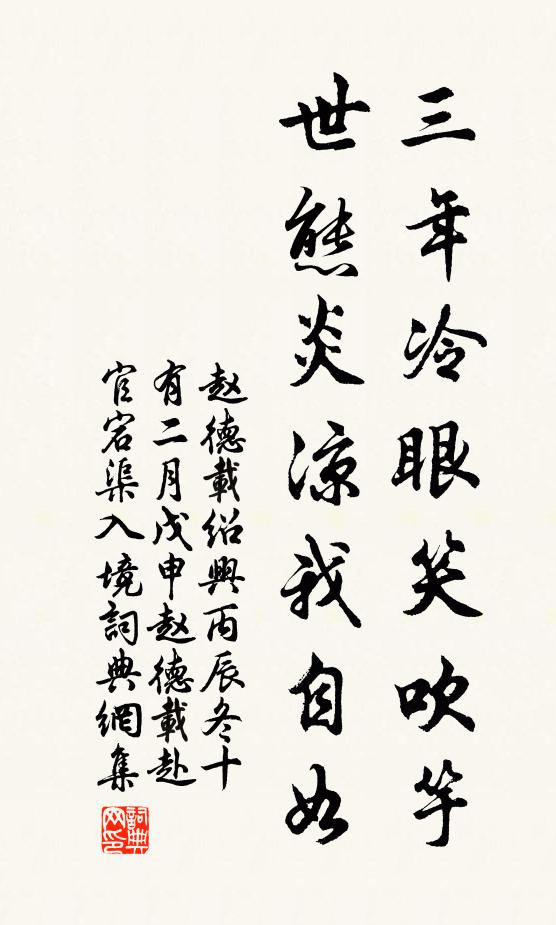 三年冷眼笑吹竽
世態炎涼我自如
赵德載绍興丙辰冬十
有二月戊申赵德載赴
官宕渠入境詞典網集
詞典网印